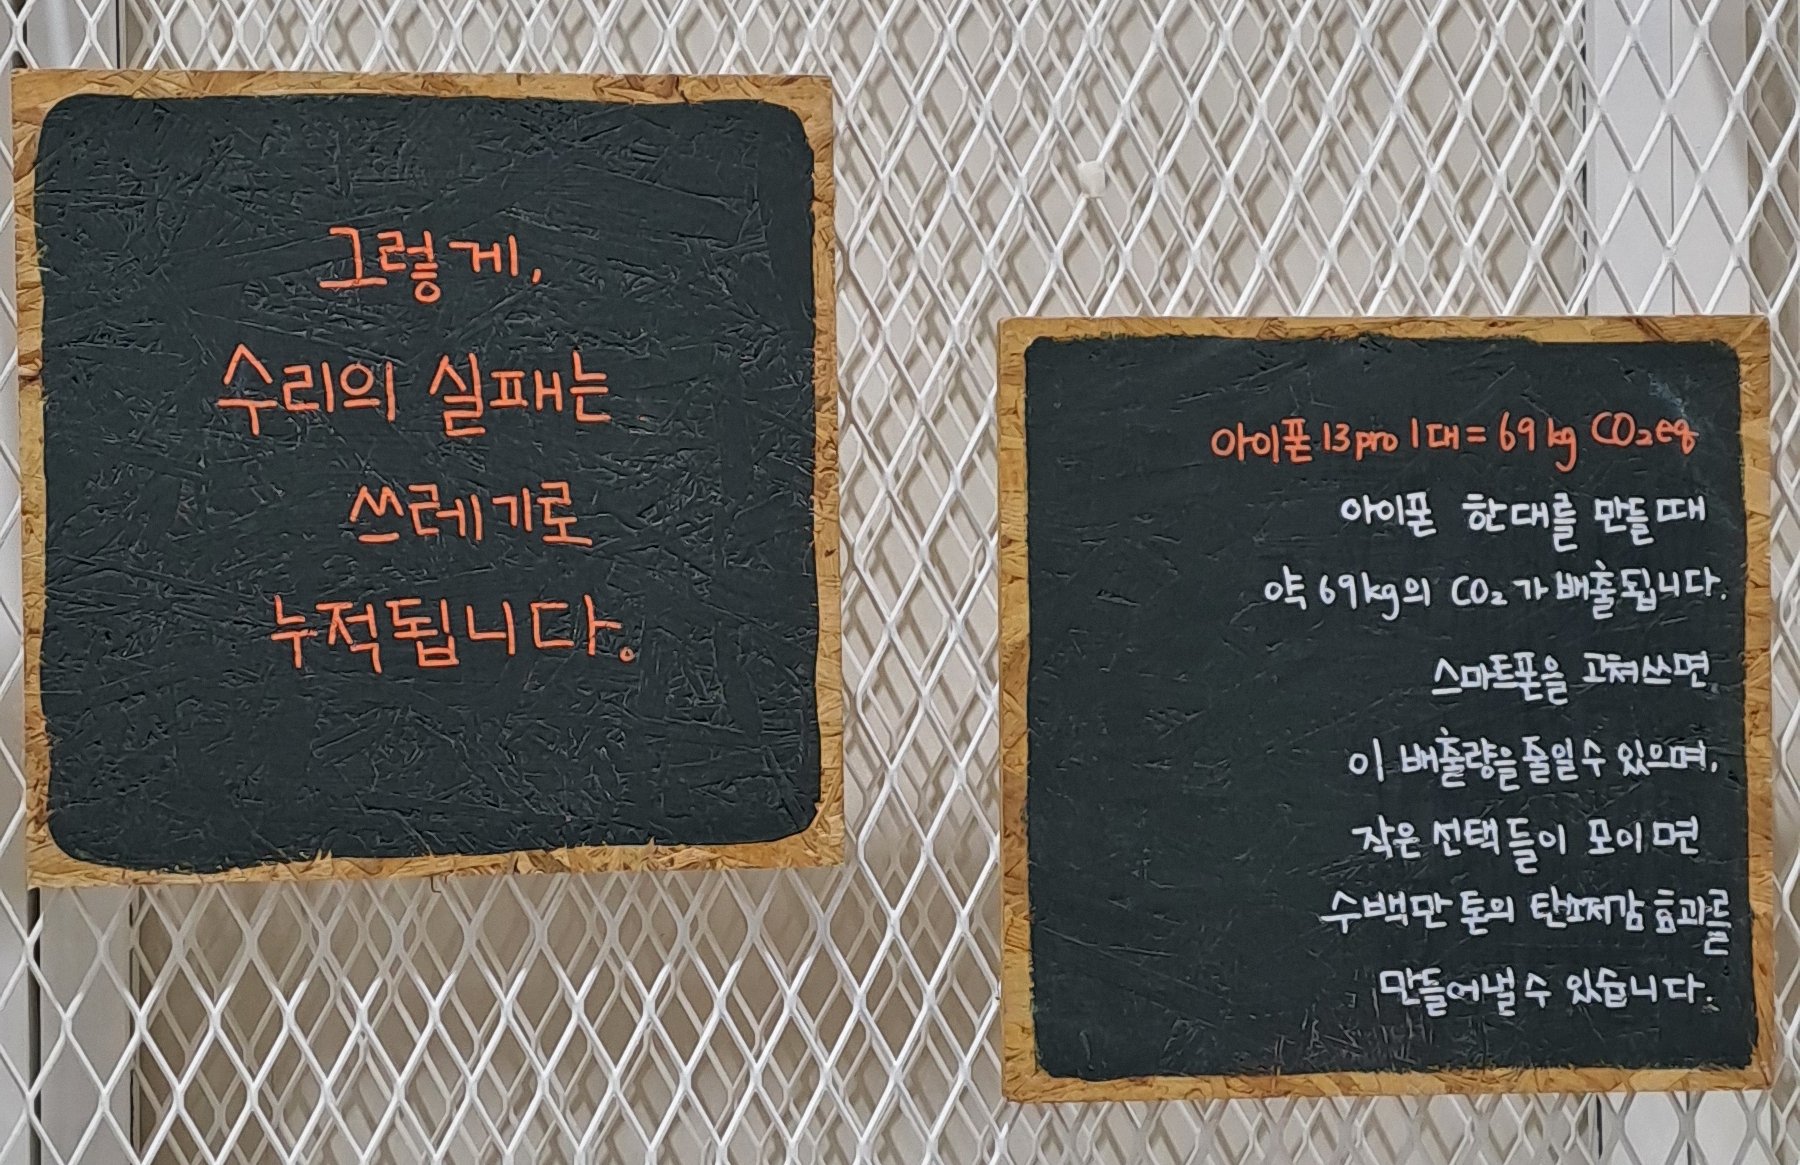 그렇게,
수리의 실패는
쓰레기로
누적됩니다.
아이폰 13 pro 1대 = 69 kg CO₂eq
아이폰 한대를 만들 때
약 69kg의 CO₂가 배출됩니다.
스마트폰을 고쳐쓰면
이 배출량을 줄일 수 있으며,
작은 선택들이 모이면
수백만 톤의 탄소저감 효과를
만들어낼 수 있습니다.